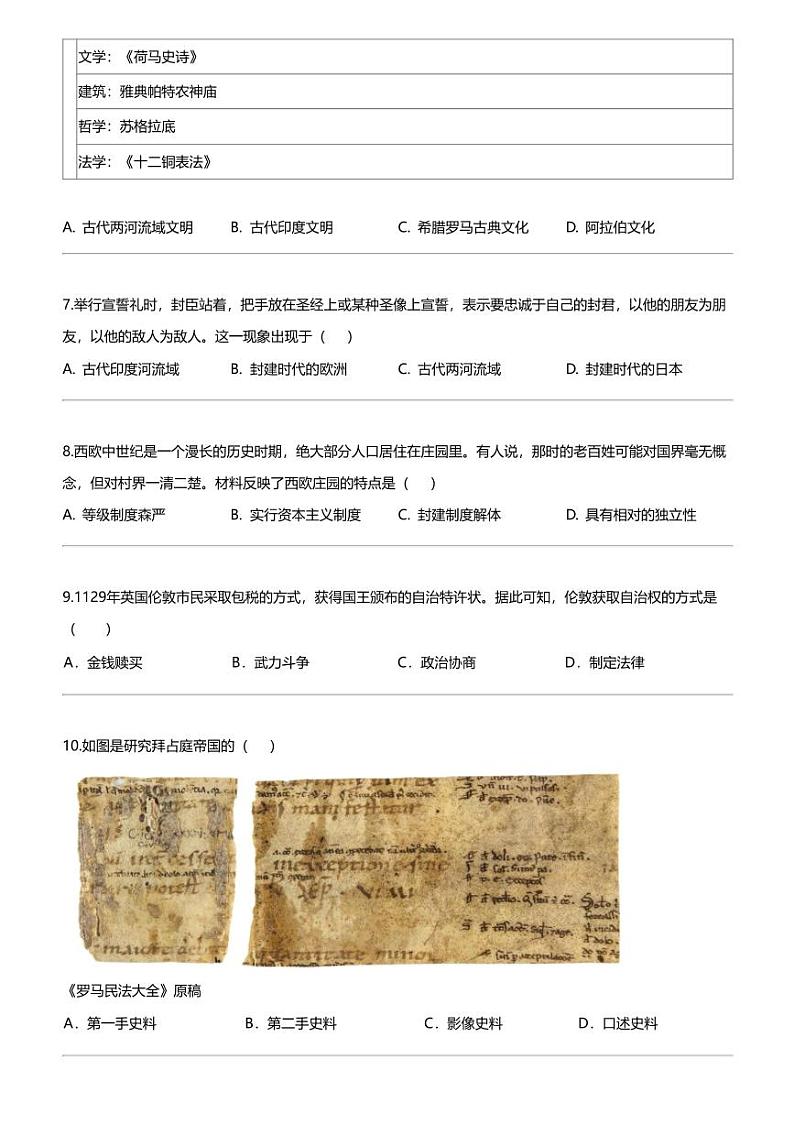 文学：《荷马史诗》
建筑：雅典帕特农神庙
哲学：苏格拉底
法学：《十二铜表法》
A. 古代两河流域文明 B. 古代印度文明 C. 希腊罗马古典文化 D. 阿拉伯文化
7.举行宣誓礼时，封臣站着，把手放在圣经上或某种圣像上宣誓，表示要忠诚于自己的封君，以他的朋友为朋
友，以他的敌人为敌人。这一现象出现于（ ）
A. 古代印度河流域 B. 封建时代的欧洲 C. 古代两河流域 D. 封建时代的日本
8.西欧中世纪是一个漫长的历史时期，绝大部分人口居住在庄园里。有人说，那时的老百姓可能对国界毫无概
念，但对村界一清二楚。材料反映了西欧庄园的特点是（ ）
A. 等级制度森严 B. 实行资本主义制度 C. 封建制度解体 D. 具有相对的独立性
9.1129年英国伦敦市民采取包税的方式，获得国王颁布的自治特许状。据此可知，伦敦获取自治权的方式是
（ ）
A．金钱赎买 B．武力斗争 C．政治协商 D．制定法律
10.如图是研究拜占庭帝国的（ ）
《罗马民法大全》原稿
A．第一手史料 B．第二手史料 C．影像史料 D．口述史料